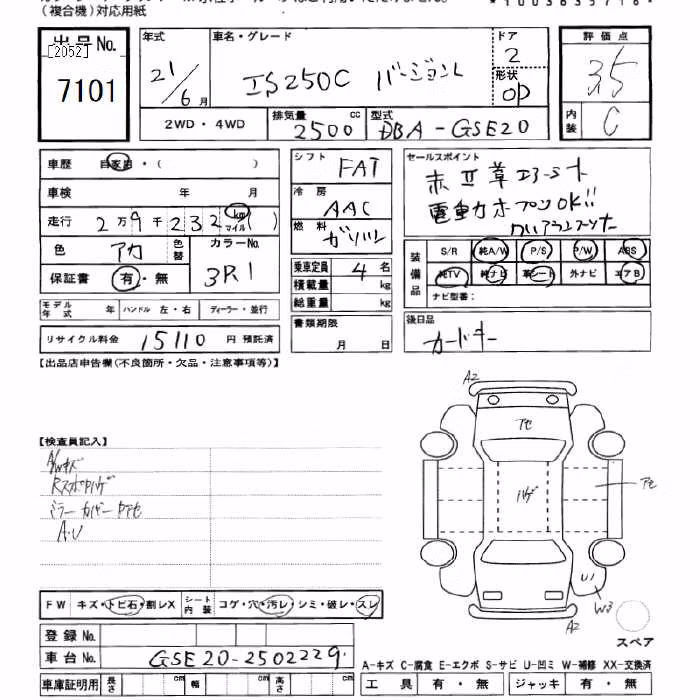 （複合機）対応用紙
出品No.
[2052]
7101
年式 車名・グレード ドア 評価点
21/6月 IS250C バージョンL 2 形状 OP 3.5
2WD・4WD 排気量 2500 cc 型式 DBA-GSE20 内装 C
車歴 自家用・( )
車検 年 月
走行 2万9千232 km マイル ( )
色 アカ 色替 カラーNo. 3R1
保証書 有・無
モデル年式 年 ハンドル 左・右 ディーラー・並行
リサイクル料金 15110 円 預託済
シフト FAT
冷房 AAC
燃料 ガソリン
乗車定員 4 名
積載量 kg
総重量 kg
書類期限 月 日
セールスポイント
電動 OK!!
装備品 S/R 純A/W P/S P/W ABS
純TV 純ナビ 革シート 外ナビ エアB
ナビ型番：
後日品
カードキー
【出品店申告欄（不良箇所・欠品・注意事項等）】
【検査員記入】
A/Wキズ
ミラーカバー
A.U
A2
アセ
ハゲ
アセ
U1
W3
A2
スペア
FW キズ・トビ石・割レX シート内装 コゲ・穴・汚レ・シミ・破レ・スレ
登録No.
車台No. GSE20-2502229
車庫証明用 長さ cm 幅 cm 高さ cm
A-キズ C-腐食 E-エクボ S-サビ U-凹ミ W-補修 XX-交換済
工具 有・無 ジャッキ 有・無